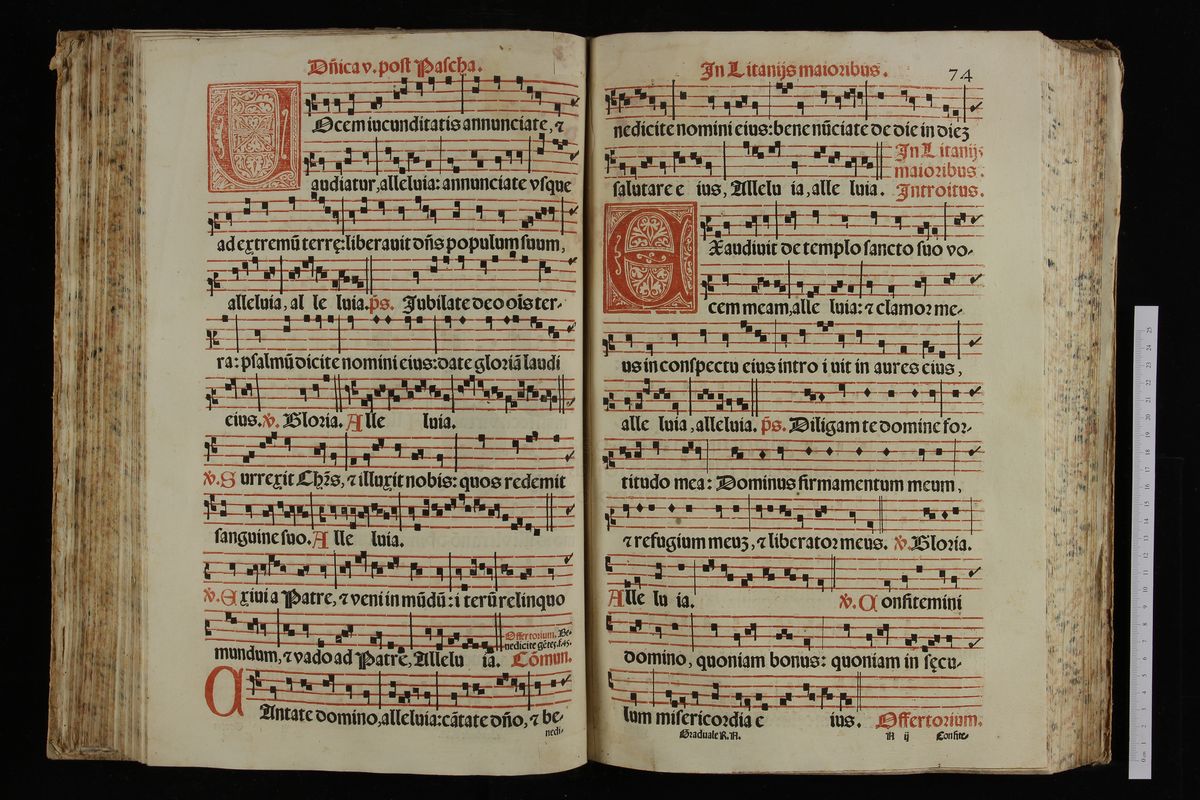 Dñica v. post Pascha.
VOcem iucunditatis annunciate, ⁊
audiatur, alleluia: annunciate vsque
ad extremũ terrę: liberauit dñs populum suum,
alleluia, al le luia. p̃s. Jubilate deo oĩs ter-
ra: psalmũ dicite nomini eius: date gloriã laudi
eius. ℣. Gloria. Alle luia.
℣. Surrexit Chr̃s, ⁊ illuxit nobis: quos redemit
sanguine suo. Alle luia.
℣. Exiui a Patre, ⁊ veni in mũdũ: i terũ relinquo
Offertorium. Be-
nedicite gẽtes. f. 45.
mundum, ⁊ vado ad Patrẽ, Allelu ia. Cõmun.
CAntate domino, alleluia: cãtate dño, ⁊ be-
nedi-
In Litanijs maioribus. 74
nedicite nomini eius: bene nũciate de die in diez
salutare e ius, Allelu ia, alle luia.
In Litanijs
maioribus.
Introitus.
EXaudiuit de templo sancto suo vo-
cem meam, alle luia: ⁊ clamor me-
us in conspectu eius intro i uit in aures eius,
alle luia, alleluia. p̃s. Diligam te domine for-
titudo mea: Dominus firmamentum meum,
⁊ refugium meuz, ⁊ liberator meus. ℣. Gloria.
Alle lu ia. ℣. Confitemini
domino, quoniam bonus: quoniam in sęcu-
lum misericordia e ius. Offertorium.
Graduale R.A. A ij Confite-